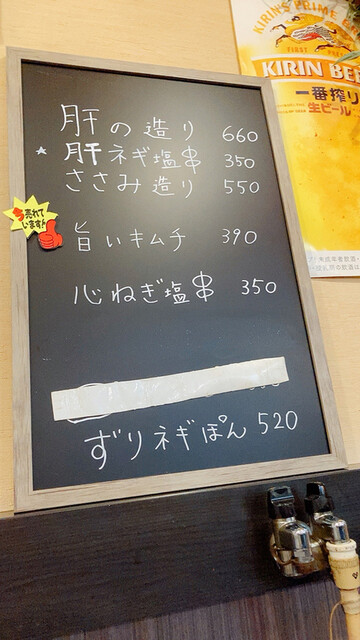 KIRIN'S PRIME
FIRST PRESS
KIRIN BEER
一番搾り
生ビール
肝の造り 660
★ 肝ネギ塩串 350
ささみ造り 550
今売れています!
旨いキムチ 390
心ねぎ塩串 350
ずりネギぽん 520